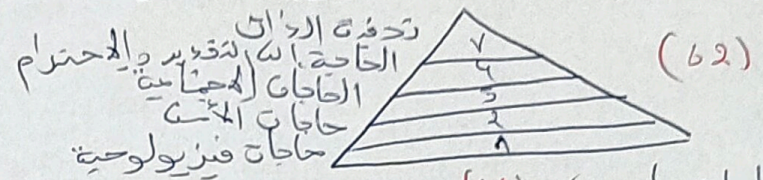 تحقيق الذات
الحاجة إلى التقدير والاحترام
الحاجات الاجتماعية
حاجات الأمن
حاجات فيزيولوجية
4
3
2
1
(62)